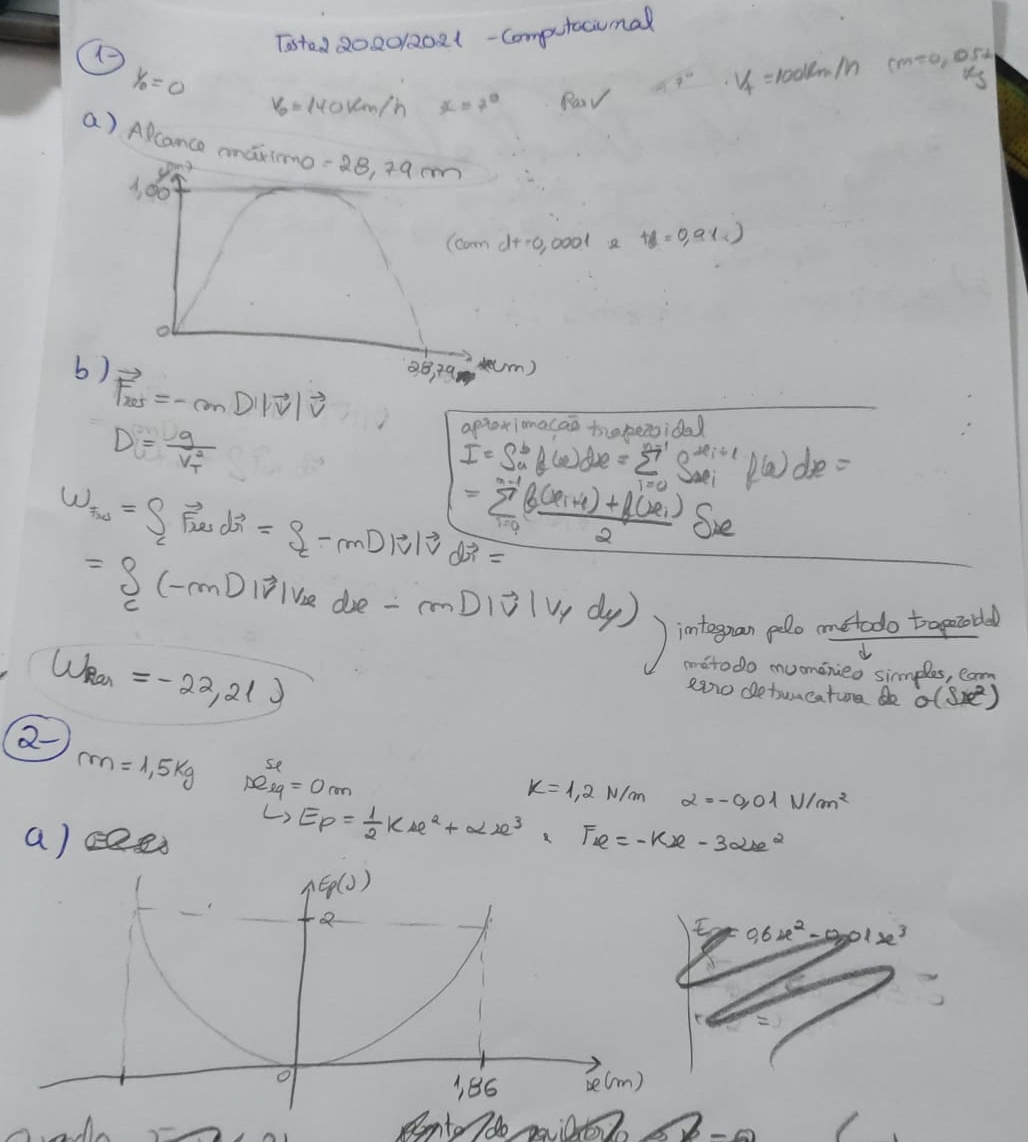 Teste 2 2020/2021 - Computacional
1-
y₀=0
V₀=140km/h α=7° Rar ✓ 7° . V_T=100km/h m=0,057 kg
a) Alcance máximo = 28,79 m
y(m)
1,00
(com dt=0,0001 e
0
28,79 x(m)
b) F⃗res = -m D|v⃗|v⃗
D = g/V_T²
aproximação trapezoidal
I = ∫ₐᵇ f(x)dx = Σᵢ₌₀ⁿ⁻¹ ∫ₓᵢˣⁱ⁺¹ f(x) dx =
= Σᵢ₌₀ⁿ⁻¹ (f(xᵢ₊₁)+f(xᵢ))/2 δx
W_Fres = ∫_c F⃗res dr⃗ = ∫_c -mD|v⃗|v⃗ dr⃗ =
= ∫_c (-m D|v⃗|vx dx - m D|v⃗|vy dy)
integrar pelo método trapezoidal
↓
método numérico simples, com
erro de truncatura de o(δx²)
W_Rar = -22,21 J
2-
m=1,5Kg
se
xeq = 0m
K=1,2 N/m α=-0,01 N/m²
↳ Ep = ½Kx²+αx³ , Fx = -Kx - 3αx²
a)
Ep(J)
2
0,6x² - 0,01x³
0
1,86
x(m)